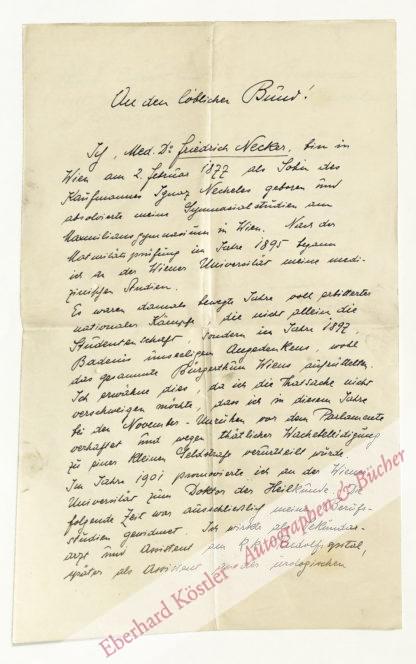 An den löblichen Bund!
Ich, Med. Dr. Friedrich Necker, bin in
Wien am 2. Februar 1877 als Sohn des
Kaufmannes Ignaz Necheles geboren und
absolvierte meine Gymnasialstudien am
Maximiliansgymnasium in Wien. Nach der
Maturitätsprüfung im Jahre 1895 begann
ich an der Wiener Universität meine medi-
zinischen Studien.
Es waren damals bewegte Jahre voll erbitterter
nationaler Kämpfe, die nicht allein die
Studentenschaft, sondern im Jahre 1897,
Badenis unseeligen Angedenkens, wohl
das gesammte Bürgerthum Wiens aufrüttelten.
Ich erwähne dies, da ich die Thatsache nicht
verschweigen möchte, dass ich in diesem Jahre
bei den November-Unruhen vor dem Parlamente
verhaftet und wegen thätlicher Wachebeleidigung
zu einer kleinen Geldstrafe verurtheilt wurde.
Im Jahre 1901 promovierte ich an der Wiener
Universität zum Doktor der Heilkunde. Die
folgende Zeit war ausschliesslich meinen Berufs-
studien gewidmet. Ich wurde als Sekundar-
arzt und Assistent am k.k. Rudolfspital,
später als Assistent an der urologischen
Eberhard Köstler Autographen & Bücher